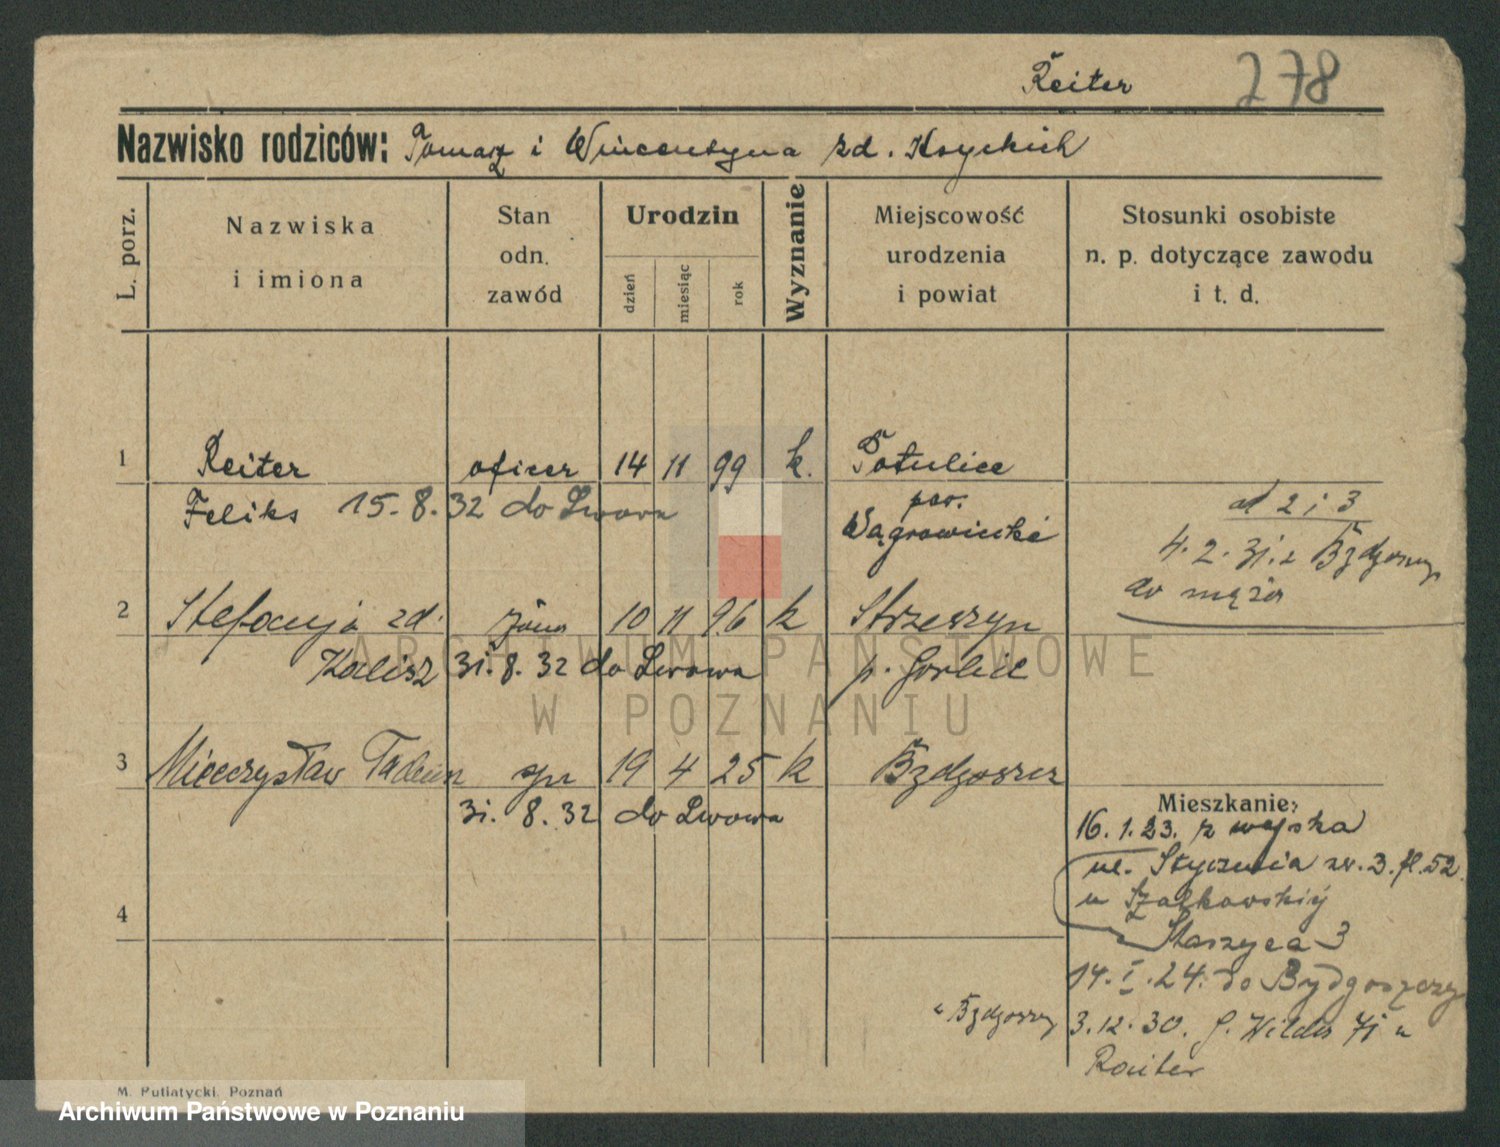 Reiter 278
Nazwisko rodziców: Tomasz i Wincentyna zd. Koyckich
L. porz.
Nazwiska
i imiona
Stan
odn.
zawód
Urodzin
dzień
miesiąc
rok
Wyznanie
Miejscowość
urodzenia
i powiat
Stosunki osobiste
n. p. dotyczące zawodu
i t. d.
1 Reiter oficer 14 11 99 k. Potulice
Feliks 15. 8. 32 do Lwowa pow.
Wągrowiecki
od 2 i 3
4. 2. 31. z Bydgoszczy
do męża
2 Stefanja zd. żona 10 11 96 k Strzeszyn
Kalisz 31. 8. 32 do Lwowa p. Gorlice
3 Mieczysław Tadeusz syn 19 4 25 k Bydgoszcz
31. 8. 32 do Lwowa
4
Mieszkanie:
16. 1. 23. z wojska
ul. Stycznia 3. 52
u Szałkowskiej
Staszyca 3
14. I. 24. do Bydgoszczy
z Bydgoszczy 3. 12. 30. G. Wilda 71 u
Reiter
M. Putiatycki, Poznań
ARCHIWUM PAŃSTWOWE
W POZNANIU
Archiwum Państwowe w Poznaniu